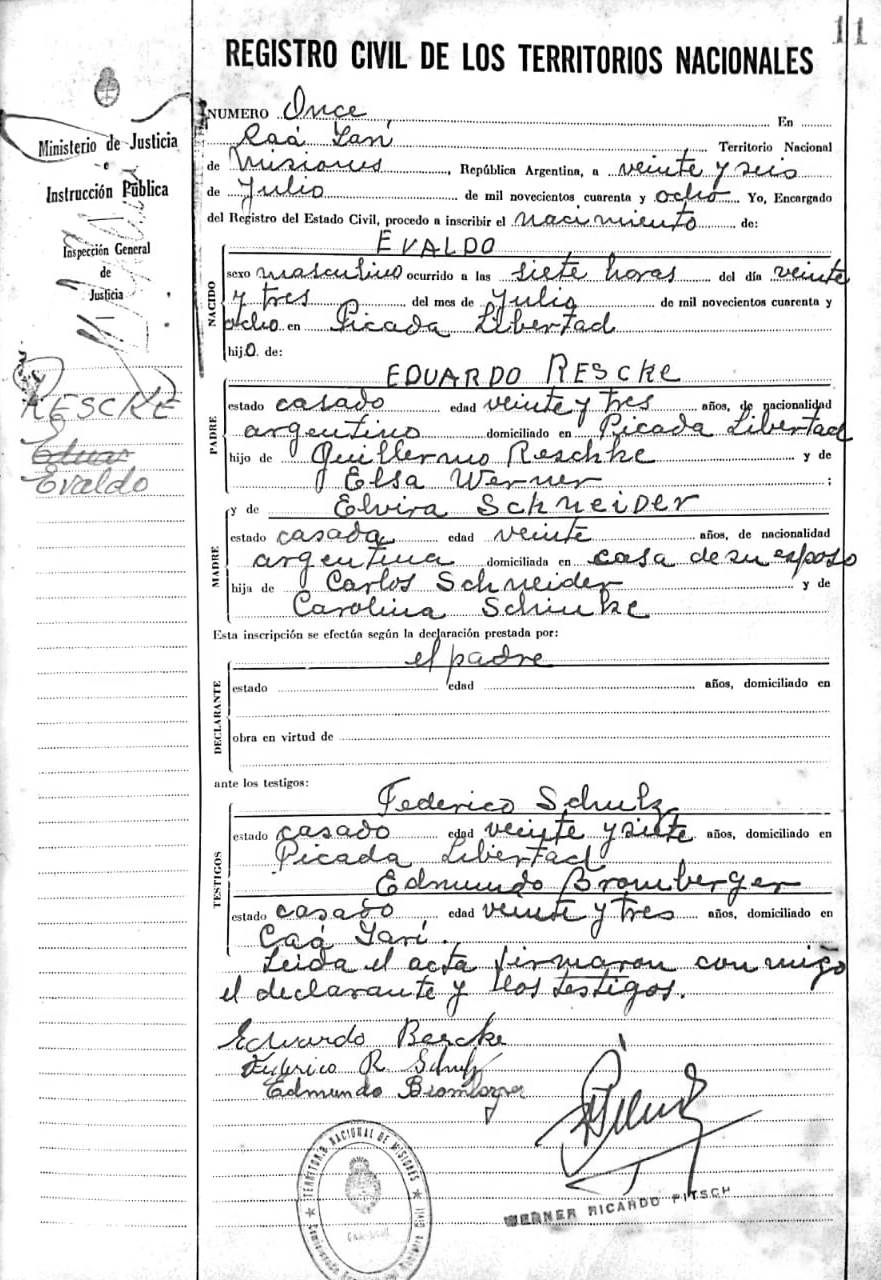 11
REGISTRO CIVIL DE LOS TERRITORIOS NACIONALES
Ministerio de Justicia
e
Instrucción Pública
Inspección General
de
Justicia
RESCKE
Eduar
Evaldo
NUMERO Once En
Caá Yarí Territorio Nacional
de Misiones, República Argentina, a veinte y seis
de Julio de mil novecientos cuarenta y ocho Yo, Encargado
del Registro del Estado Civil, procedo a inscribir el nacimiento de:
NACIDO
EVALDO
sexo masculino ocurrido a las siete horas del día veinte
y tres del mes de Julio de mil novecientos cuarenta y
ocho en Picada Libertad
hijo de:
PADRE
EDUARDO RESCKE
estado casado edad veinte y tres años, de nacionalidad
argentino domiciliado en Picada Libertad
hijo de Guillermo Reschke y de
Elsa Werner ;
MADRE
y de Elvira Schneider
estado casada edad veinte años, de nacionalidad
argentina domiciliada en casa de su esposo
hija de Carlos Schneider y de
Carolina Schinke
Esta inscripción se efectúa según la declaración prestada por:
DECLARANTE
el padre
estado edad años, domiciliado en
obra en virtud de
ante los testigos:
TESTIGOS
Federico Schulz
estado casado edad veinte y siete años, domiciliado en
Picada Libertad
Edmundo Bromberger
estado casado edad veinte y tres años, domiciliado en
Caá Yarí.
Leida el acta firmaron con migo
el declarante y los testigos.
Eduardo Rescke
Federico R. Schulz
Edmundo Bromberger
TERRITORIO NACIONAL DE MISIONES
Registro Civil
WERNER RICARDO PITSCH